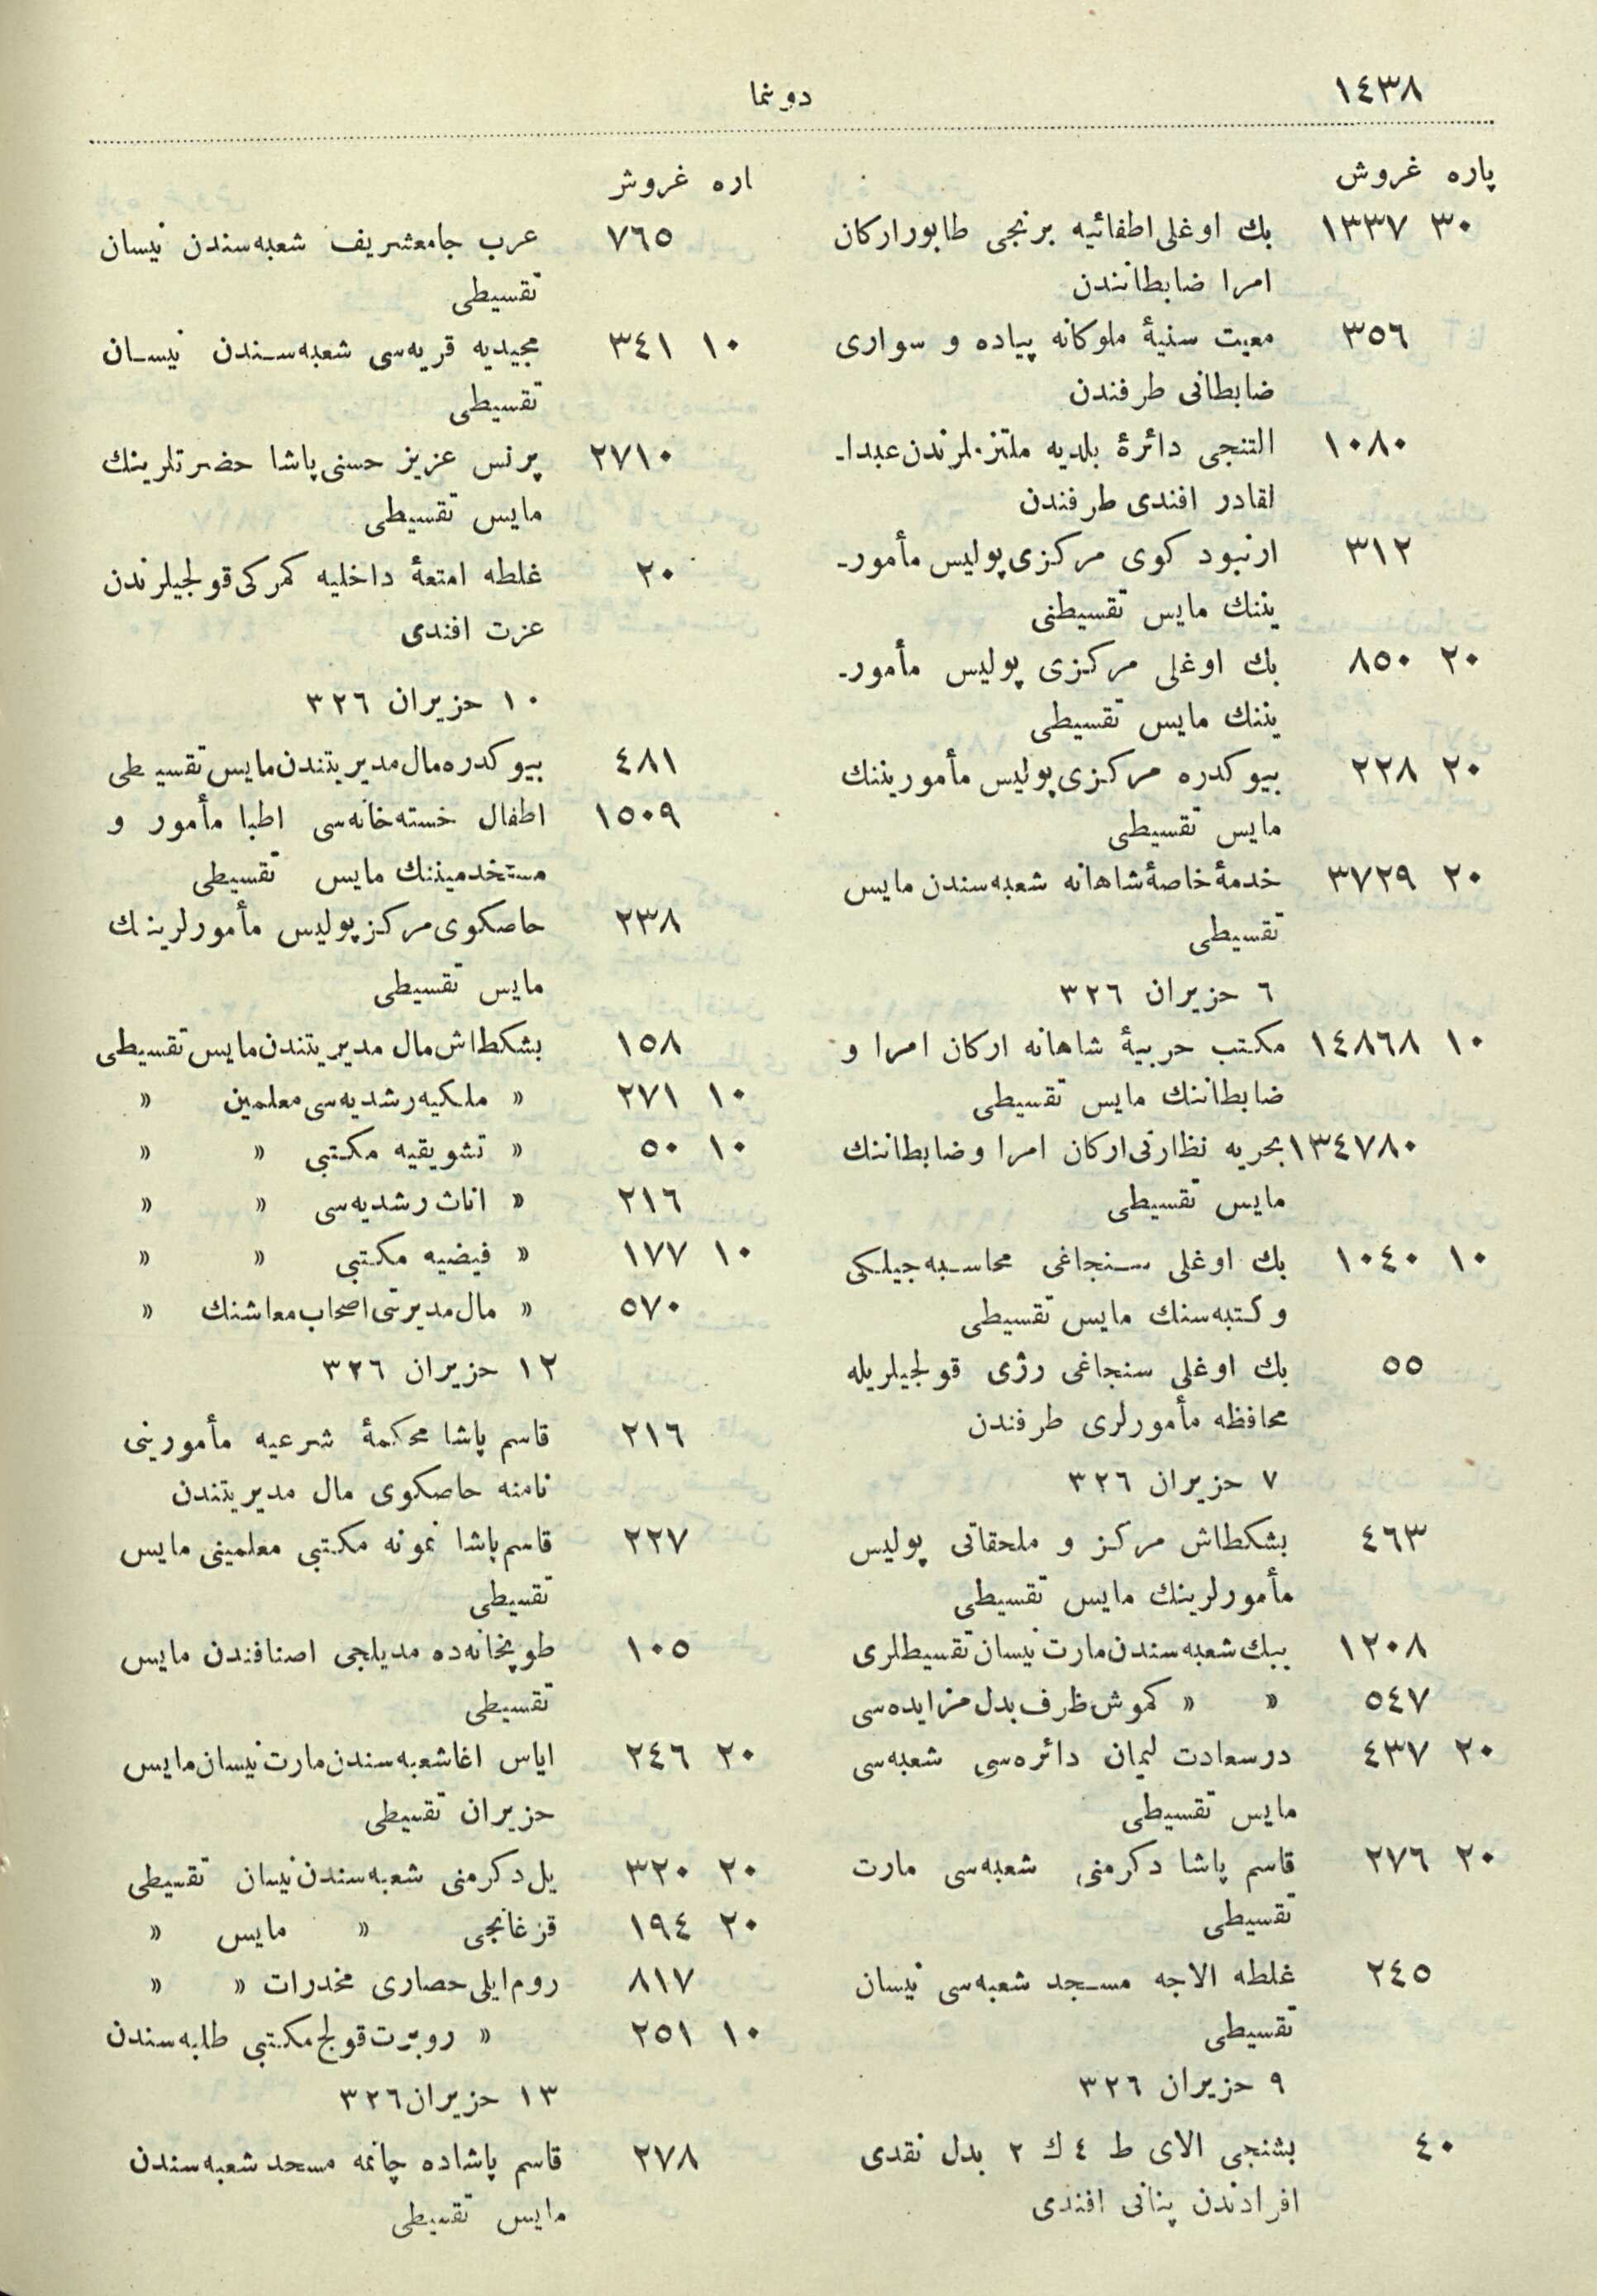 ١٤٣٨
دوننما
پاره غروش
٣٠ ١٣٣٧ بك اوغلى اطفائيه برنجى طابور اركان
امرا ضابطانندن
٣٥٦ معيت سنيهٔ ملوكانه پياده و سوارى
ضابطانى طرفندن
١٠٨٠ التنجى دائرهٔ بلديه ملتزملرندن عبدا-
لقادر افندى طرفندن
٣١٢ ارنبود كوى مركزى پوليس مأمور-
يننك مايس تقسيطنى
٢٠ ٨٥٠ بك اوغلى مركزى پوليس مأمور-
يننك مايس تقسيطى
٢٠ ٢٢٨ بيوكدره مركزى پوليس مأموريننك
مايس تقسيطى
٢٠ ٣٧٢٩ خدمهٔ خاصهٔ شاهانه شعبه سندن مايس
تقسيطى
٦ حزيران ٣٢٦
١٠ ١٤٨٦٨ مكتب حربيهٔ شاهانه اركان امرا و
ضابطاننك مايس تقسيطى
١٣٤٧٨٠ بحريه نظارتى اركان امرا وضابطاننك
مايس تقسيطى
١٠ ١٠٤٠ بك اوغلى سنجاغى محاسبه جيلكى
وكتبه سنك مايس تقسيطى
٥٥ بك اوغلى سنجاغى رژى قولجيلريله
محافظه مأمورلرى طرفندن
٧ حزيران ٣٢٦
٤٦٣ بشكطاش مركز و ملحقاتى پوليس
مأمورلرينك مايس تقسيطى
١٢٠٨ ببك شعبه سندن مارت نيسان تقسيطلرى
٥٤٧ » » كموش ظرف بدل مزايده سى
٢٠ ٤٣٧ درسعادت ليمان دائره سى شعبه سى
مايس تقسيطى
٢٠ ٢٧٦ قاسم پاشا دكرمنى شعبه سى مارت
تقسيطى
٢٤٥ غلطه الاجه مسجد شعبه سى نيسان
تقسيطى
٩ حزيران ٣٢٦
٤٠ بشنجى الاى ط ٤ ك ٢ بدل نقدى
افرادندن پنانى افندى
اره غروش
٧٦٥ عرب جامعشريف شعبه سندن نيسان
تقسيطى
١٠ ٣٤١ مجيديه قريه سى شعبه سندن نيسان
تقسيطى
٢٧١٠ پرنس عزيز حسنى پاشا حضرتلرينك
مايس تقسيطى
٢٠ غلطه امتعهٔ داخليه كمركى قولجيلرندن
عزت افندى
١٠ حزيران ٣٢٦
٤٨١ بيوكدره مال مديريتندن مايس تقسيطى
١٥٠٩ اطفال خسته خانه سى اطبا مأمور و
مستخدميننك مايس تقسيطى
٢٣٨ حاصكوى مركز پوليس مأمورلرينك
مايس تقسيطى
١٥٨ بشكطاش مال مديريتندن مايس تقسيطى
١٠ ٢٧١ » ملكيه رشديه سى معلمين »
١٠ ٥٠ » تشويقيه مكتبى » »
٢١٦ » اناث رشديه سى » »
١٠ ١٧٧ » فيضيه مكتبى » »
٥٧٠ » مال مديرتى اصحاب معاشنك »
١٢ حزيران ٣٢٦
٢١٦ قاسم پاشا محكمهٔ شرعيه مأمورينى
نامنه حاصكوى مال مديريتندن
٢٢٧ قاسم پاشا نمونه مكتبى معلمينى مايس
تقسيطى
١٠٥ طوپخانه ده مديلجى اصنافندن مايس
تقسيطى
٢٠ ٢٤٦ اياس اغا شعبه سندن مارت نيسان مايس
حزيران تقسيطى
٢٠ ٣٢٠ يل دكرمنى شعبه سندن نيسان تقسيطى
٢٠ ١٩٤ قزغانجى » مايس »
٨١٧ روم ايلى حصارى مخدرات » »
١٠ ٢٥١ » روبرت قولج مكتبى طلبه سندن
١٣ حزيران ٣٢٦
٢٧٨ قاسم پاشاده چاتمه مسجد شعبه سندن
مايس تقسيطى